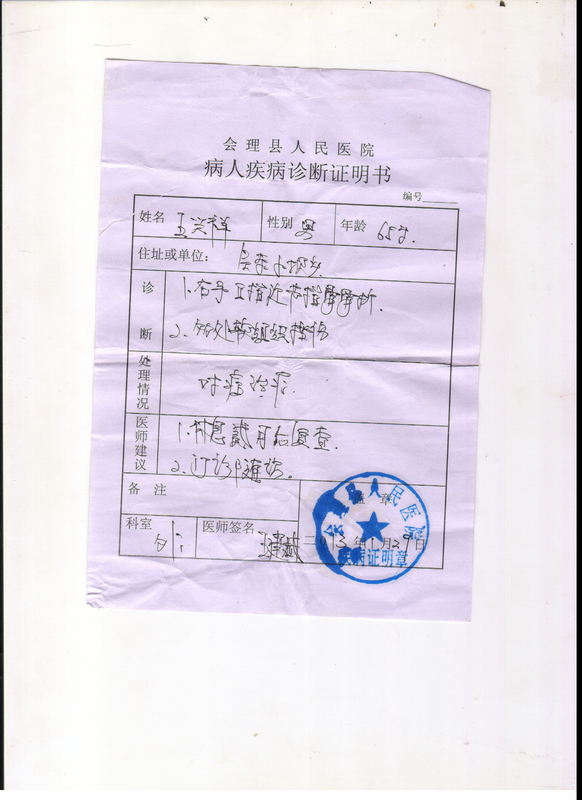 会理县人民医院
病人疾病诊断证明书
编号
姓名 王兴祥 性别 男 年龄 65岁.
住址或单位:
诊断
1.右手 指近节指骨骨折.
2. 处软组织挫伤
处理情况
对症治疗.
医师建议
1.休息贰月后复查.
2.门诊随访.
备注 盖章
科室 外 医师签名 二013年1月29日
会理县人民医院
疾病证明章